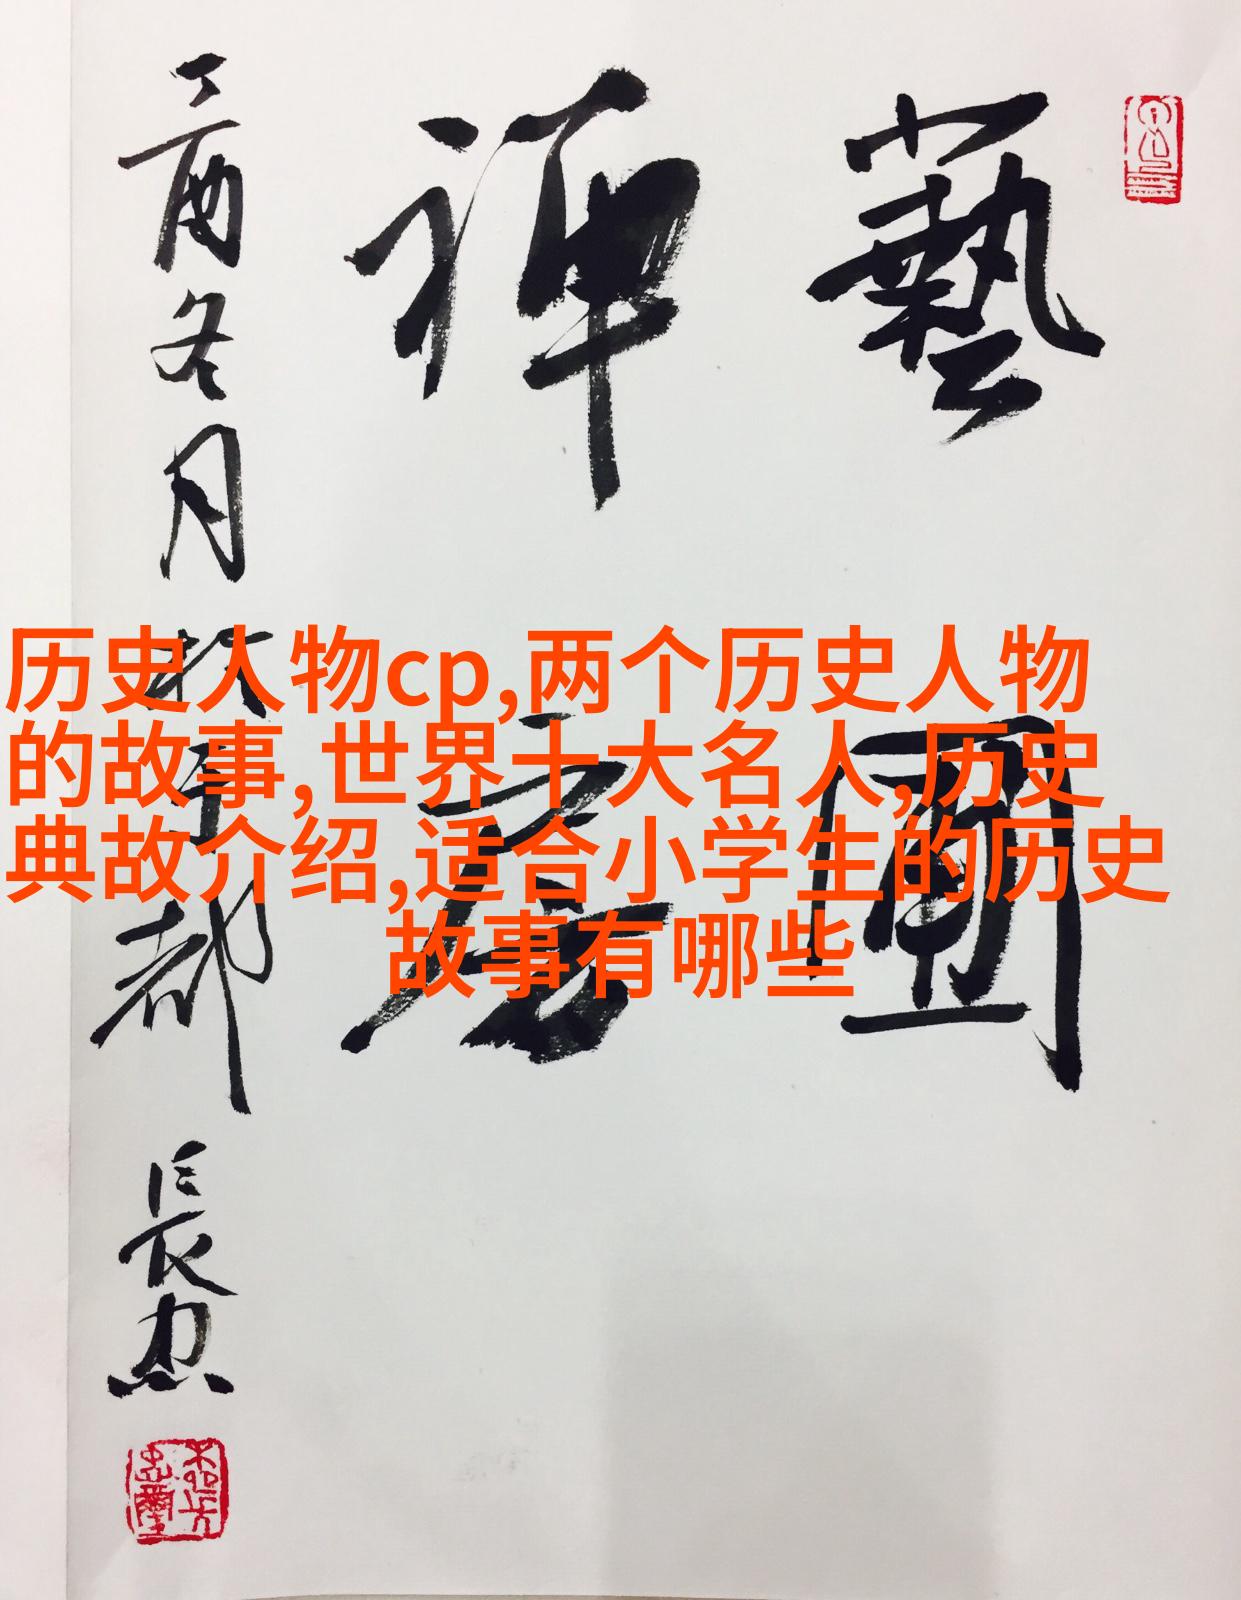 藝圃
禪房
丁酉冬月於京都
長忠
历史人物cp,两个历史人物
的故事,世界十大名人,历史
典故介绍,适合小学生的历史
故事有哪些